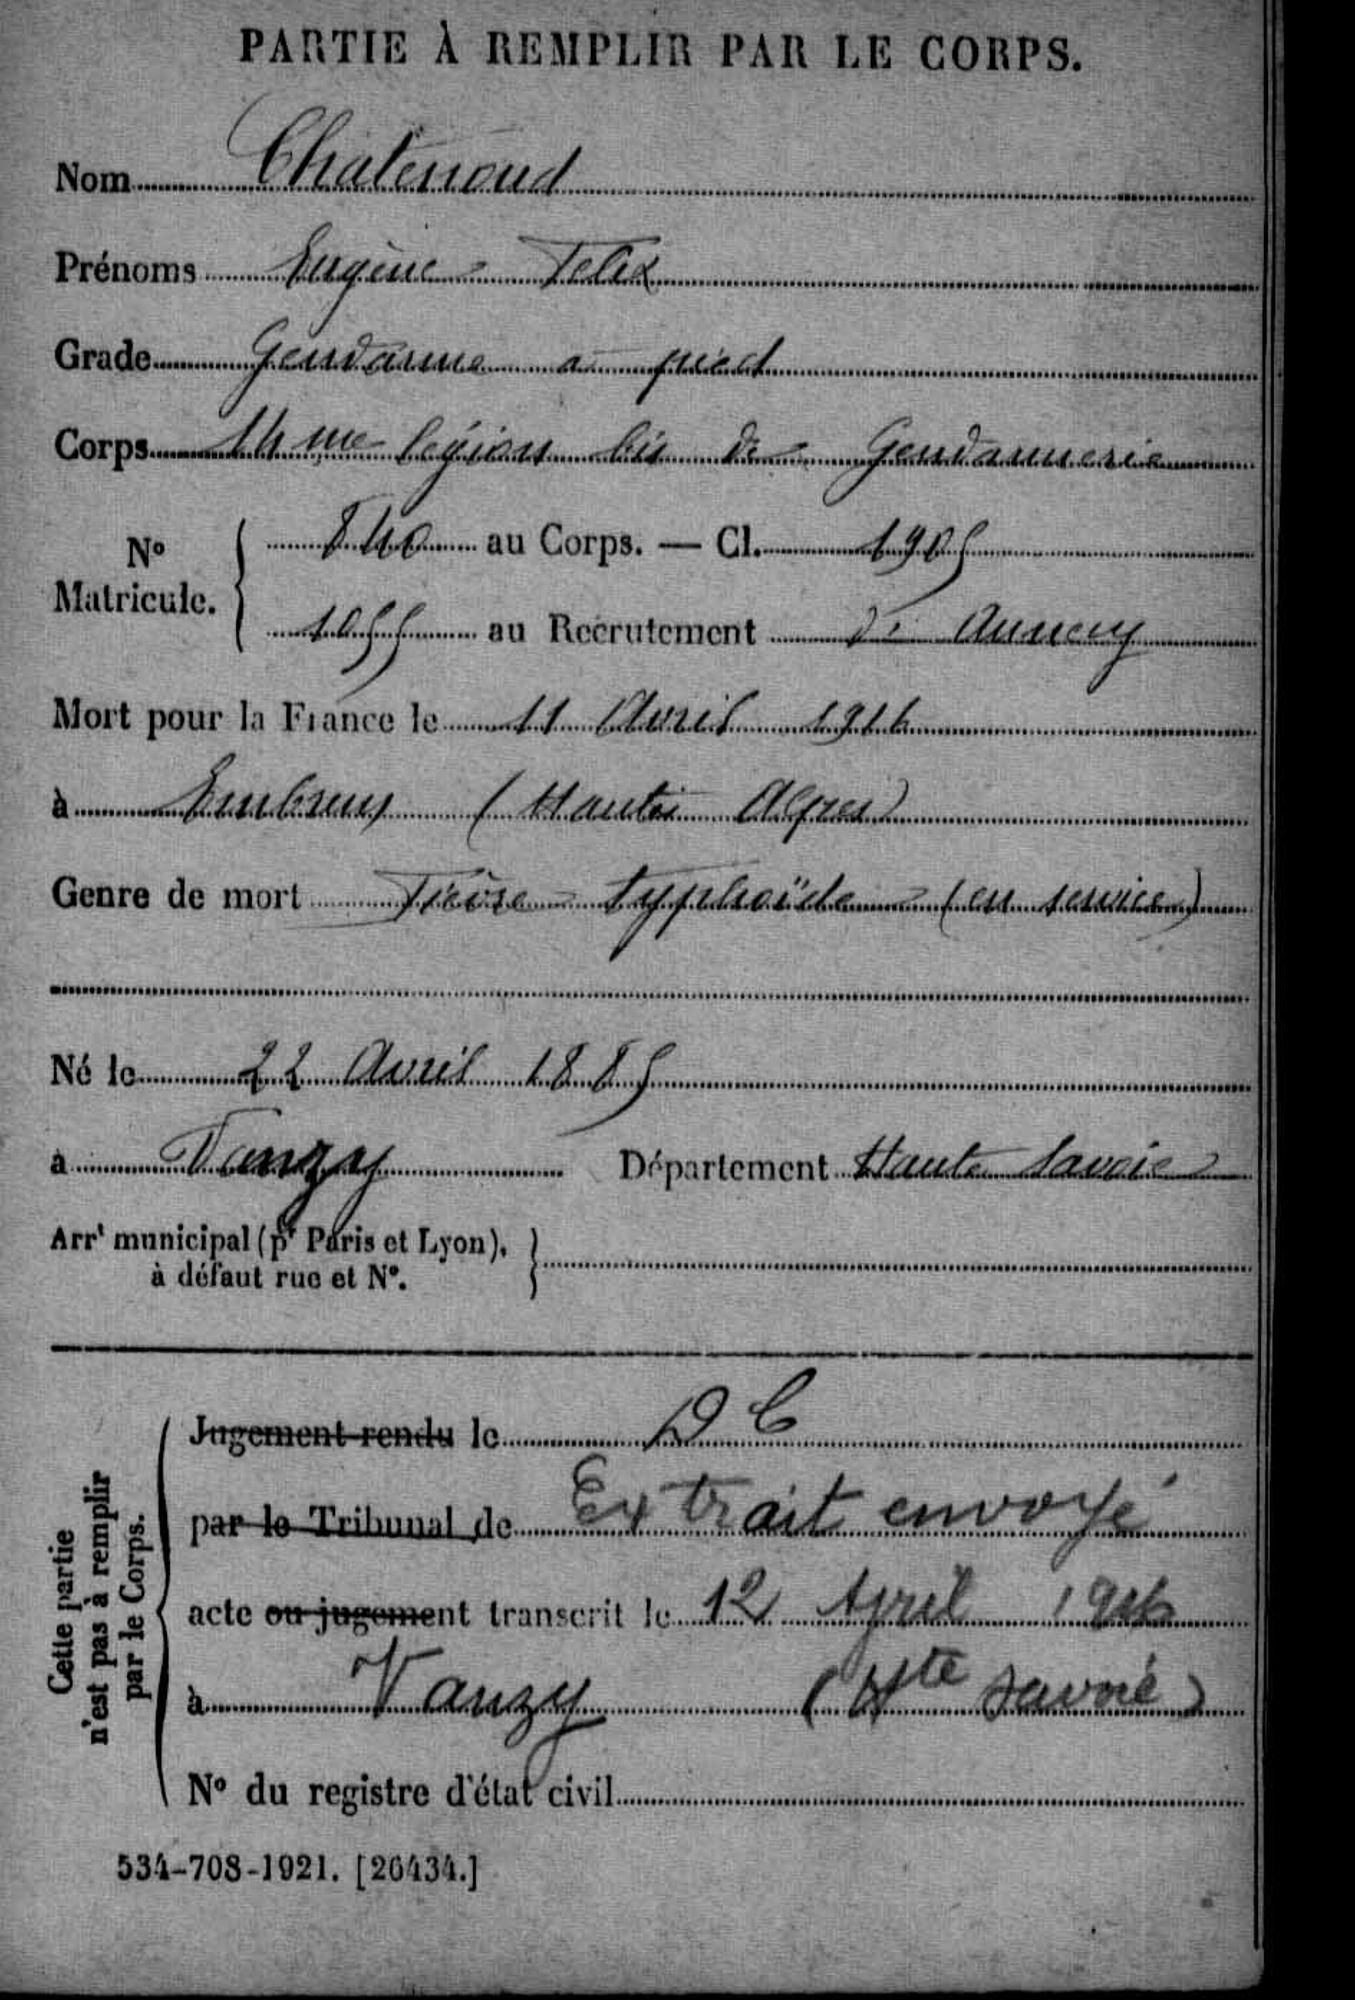 PARTIE À REMPLIR PAR LE CORPS.
Nom Chatenoud
Prénoms Eugène Felix
Grade Gendarme a pied
Corps 14me légion bis de Gendarmerie
No Matricule. { 840 au Corps. — Cl. 1905
1055 au Recrutement de Annecy
Mort pour la France le 11 Avril 1916
à Embrun (Hautes Alpes)
Genre de mort Fièvre typhoïde (en service)
Né le 22 Avril 1885
à Vanzy Département Haute Savoie
Arrt municipal (pr Paris et Lyon), à défaut rue et No. }
Cette partie n'est pas à remplir par le Corps.
Jugement rendu le D C
par le Tribunal de Extrait envoyé
acte ou jugement transcrit le 12 April 1916
à Vanzy (Hte Savoie)
No du registre d'état civil
534-708-1921. [26434.]